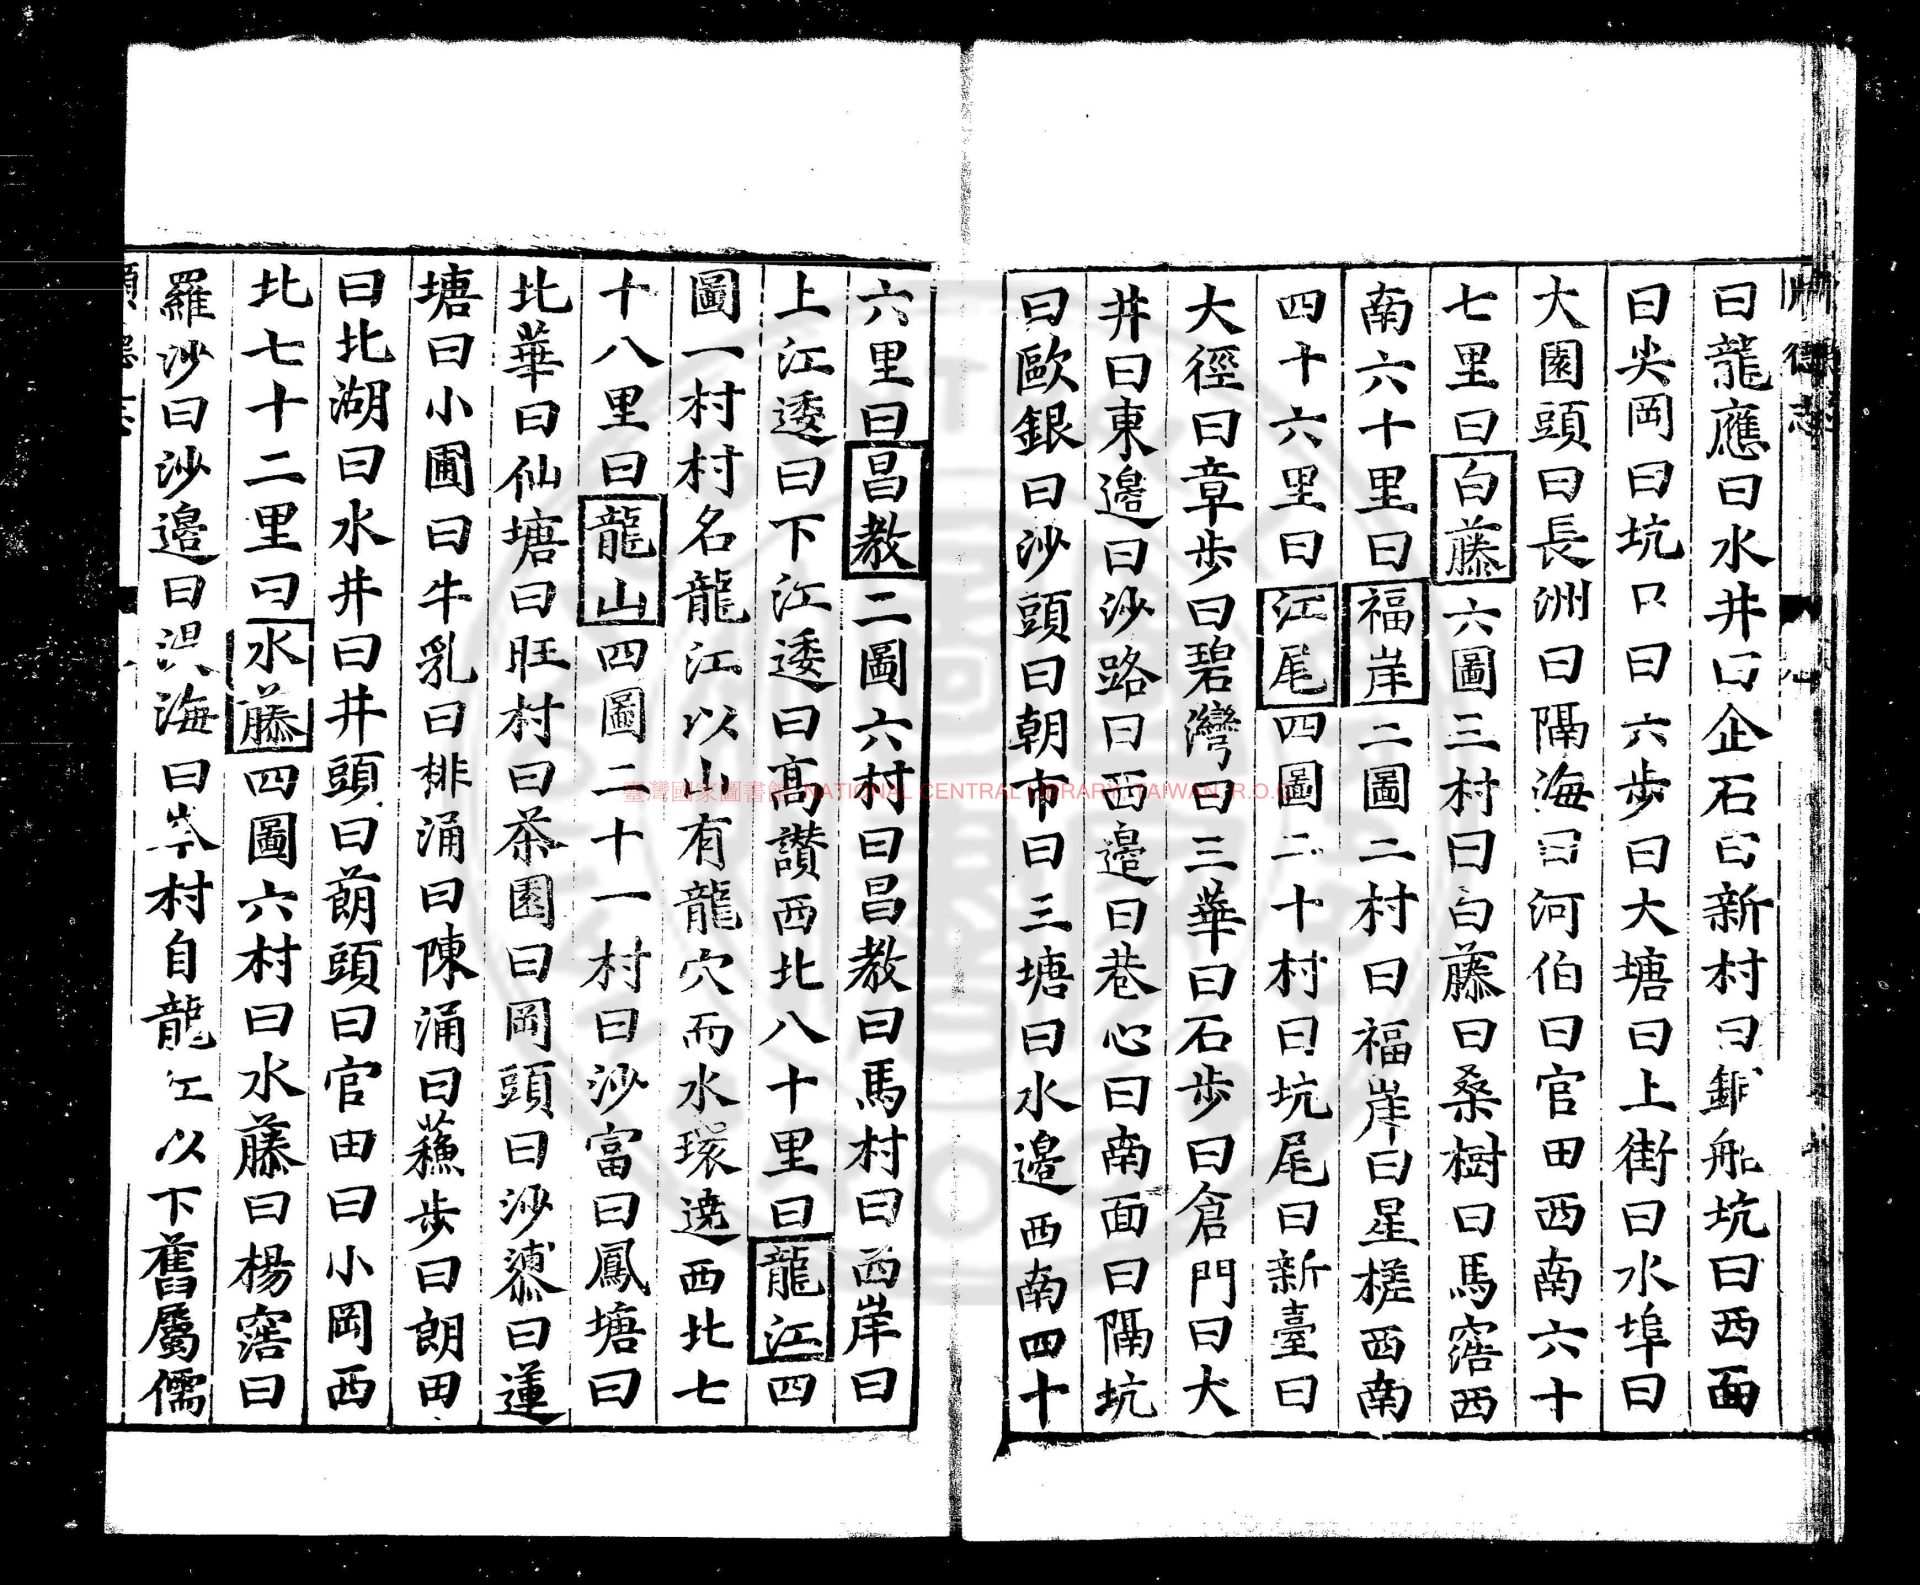 曰龍應曰水井曰企石曰新村曰銅船坑曰西面
曰尖岡曰坑口曰六步曰大塘曰上街曰水埠曰
大園頭曰長洲曰隔海曰河伯曰官田西南六十
七里曰白藤六圖三村曰白藤曰桑樹曰馬窖西
南六十里曰福岸二圖二村曰福岸曰星槎西南
四十六里曰江尾四圖二十村曰坑尾曰新臺曰
大徑曰章步曰碧灣曰三華曰石步曰倉門曰大
井曰東邉曰沙路曰西邉曰巷心曰南面曰隔坑
曰歐銀曰沙頭曰朝市曰三塘曰水邉西南四十
六里曰昌教二圖六村曰昌教曰馬村曰西岸曰
上江逶曰下江逶曰髙讃西北八十里曰龍江四
圖一村村名龍江以山有龍穴而水環遶西北七
十八里曰龍山四圖二十一村曰沙富曰鳳塘曰
北華曰仙塘曰旺村曰茶園曰岡頭曰沙漖曰蓮
塘曰小圃曰牛乳曰排涌曰陳涌曰蘓步曰朗田
曰北湖曰水井曰井頭曰萠頭曰官田曰小岡西
北七十二里曰水藤四圖六村曰水藤曰楊窖曰
羅沙曰沙邉曰海曰岑村自龍江以下舊屬儒
德志
臺灣國家圖書館 NATIONAL CENTRAL LIBRARY, TAIWAN, R.O.C